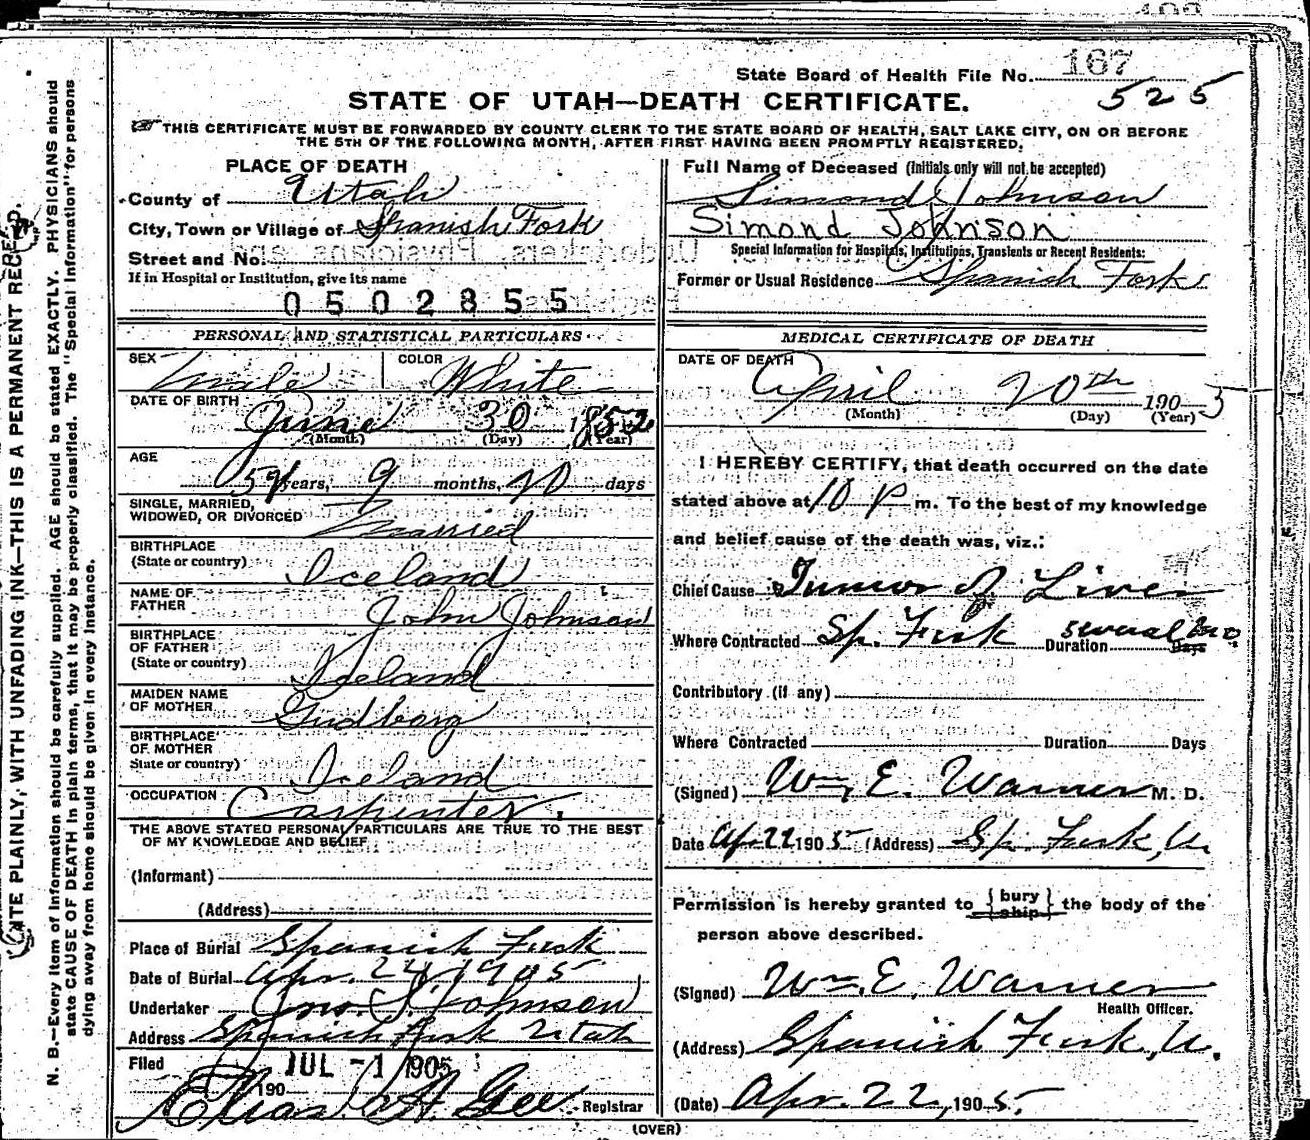 State Board of Health File No. 167
525
STATE OF UTAH—DEATH CERTIFICATE.
THIS CERTIFICATE MUST BE FORWARDED BY COUNTY CLERK TO THE STATE BOARD OF HEALTH, SALT LAKE CITY, ON OR BEFORE
THE 5TH OF THE FOLLOWING MONTH, AFTER FIRST HAVING BEEN PROMPTLY REGISTERED.
PLACE OF DEATH
County of Utah
City, Town or Village of Spanish Fork
Street and No.
If in Hospital or Institution, give its name
0502855
Full Name of Deceased (Initials only will not be accepted)
Simond Johnson
Simond Johnson
Special Information for Hospitals, Institutions, Transients or Recent Residents:
Former or Usual Residence Spanish Fork
PERSONAL AND STATISTICAL PARTICULARS
SEX male COLOR White
DATE OF BIRTH June 30 1852
(Month) (Day) (Year)
AGE
years, 9 months, 20 days
SINGLE, MARRIED,
WIDOWED, OR DIVORCED Married
BIRTHPLACE
(State or country) Iceland
NAME OF
FATHER John Johnson
BIRTHPLACE
OF FATHER
(State or country) Iceland
MAIDEN NAME
OF MOTHER Gudborg
BIRTHPLACE
OF MOTHER
State or country) Iceland
OCCUPATION Carpenter.
THE ABOVE STATED PERSONAL PARTICULARS ARE TRUE TO THE BEST
OF MY KNOWLEDGE AND BELIEF
(Informant)
(Address)
Place of Burial Spanish Fork
Date of Burial Apr. 24, 1905
Undertaker Jno. S. Johnson
Address Spanish Fork Utah
Filed JUL -1 1905
190
Elias A. Gee Registrar
MEDICAL CERTIFICATE OF DEATH
DATE OF DEATH
April 20th 1905
(Month) (Day) (Year)
I HEREBY CERTIFY, that death occurred on the date
stated above at 10 P m. To the best of my knowledge
and belief cause of the death was, viz.:
Chief Cause Tumor of Liver
Where Contracted Sp. Fork Duration several mo. Days
Contributory (if any)
Where Contracted Duration Days
(Signed) Wm. E. Warner M. D.
Date Ap. 22 1905 (Address) Sp. Fork, U.
Permission is hereby granted to { bury ship } the body of the
person above described.
(Signed) Wm. E. Warner
Health Officer.
(Address) Spanish Fork, U.
(Date) Apr. 22, 1905.
(OVER)
WRITE PLAINLY, WITH UNFADING INK—THIS IS A PERMANENT RECORD.
N. B.—Every item of information should be carefully supplied. AGE should be stated EXACTLY. PHYSICIANS should
state CAUSE OF DEATH in plain terms, that it may be properly classified. The "Special Information" for persons
dying away from home should be given in every instance.